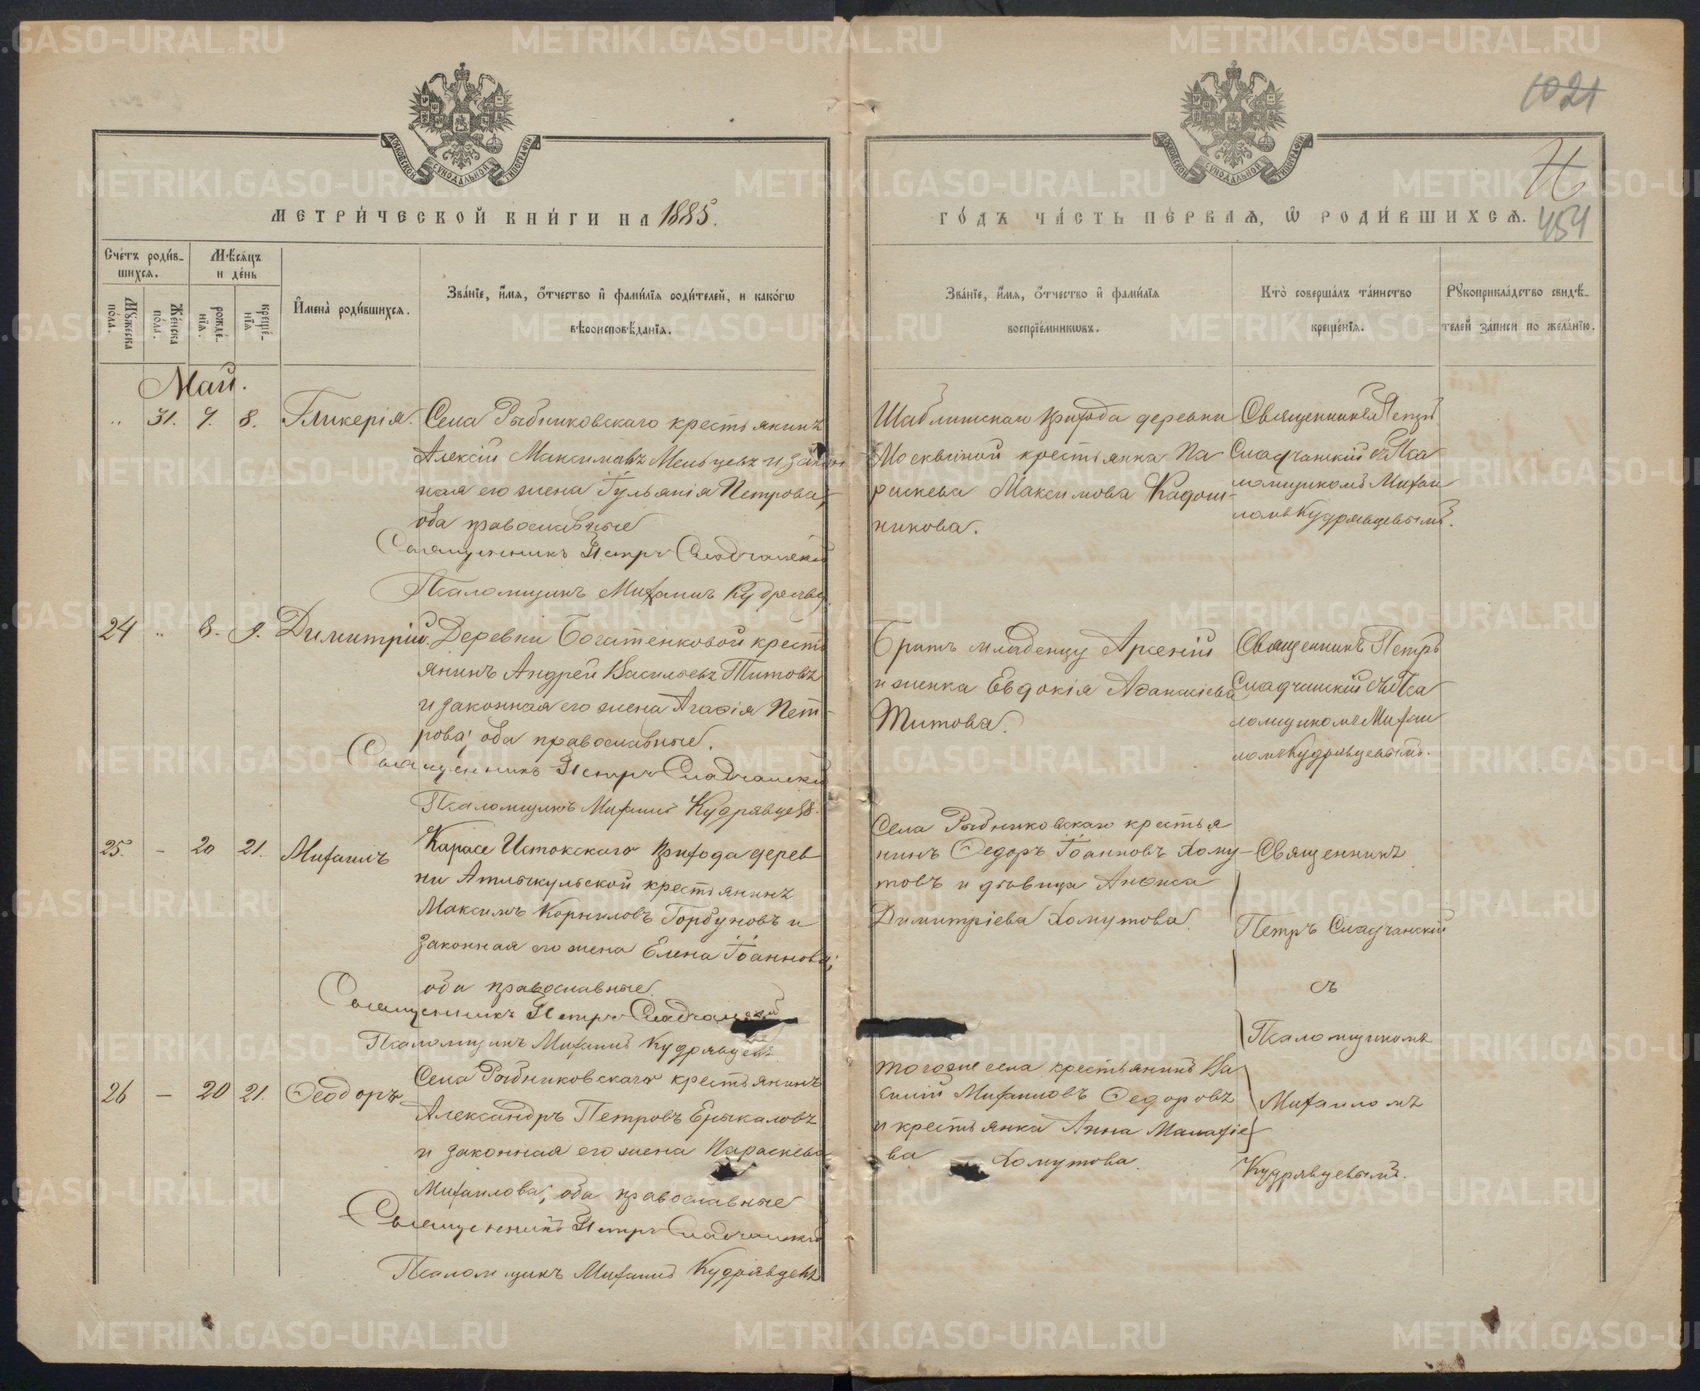 1021
454
МЕТРИ́ЧЕСКОЙ КНИ́ГИ НА 1885.
ГО́ДЪ ЧА́СТЬ ПЕ́РВАѦ, Ѿ РОДИ́ВШИХСѦ.
Сче́тъ роди́в-
шихся.
Мѣ́сяцъ
и де́нь
Мꙋ́жеска по́ла.
Же́нска по́ла.
рожде́-
нїѧ.
креще́-
нїѧ
И҆мена̀ роди́вшихсѧ.
Зва́нїе, и҆́мѧ, ѻ҆́тчество и҆ фами́лїѧ родителей, и како́гѡ
вѣроисповѣ́данїѧ.
Зва́нїе, и҆́мѧ, ѻ҆́тчество и҆ фами́лїѧ
воспрїе́мникѡвъ.
Кто̀ соверша́лъ та́инство
креще́нїѧ.
Рꙋкоприкла́дство свидѣ́-
телей за́писи по жела́нїю.
Май.
" 31. 7. 8. Гликерія.
Села Рыбниковскаго крестьянинъ
Алексій Максимовъ Мельцевъ и закон
ная его жена Іульянія Петрова,
оба православные
Священникъ Петръ Сладчанскій
Псаломщикъ Михаилъ Кудрявц
Шаблишскаго прихода деревни
Москвиной крестьянка Па
раскева Максимова Кадош-
никова.
Священникъ Петръ
Сладчанскій съ Пса
ломщикомъ Михаи
ломъ Кудрявцевымъ.
24 " 8. 9. Димитрій.
Деревни Богатенковой кресть
янинъ Андрей Васильевъ Титовъ
и законная его жена Агафія Пет-
рова; оба православные.
Священникъ Петръ Сладчанскій
Псаломщикъ Михаилъ Кудрявцевъ.
Братъ младенцу Арсеній
и женка Евдокія Афанасіева
Титова.
Священникъ Петръ
Сладчанскій съ Пса
ломщикомъ Михаи
ломъ Кудрявцевымъ.
25. – 20 21. Михаилъ
Карасе Истокскаго прихода дерев
ни Атлыкульской крестьянинъ
Максимъ Корниловъ Горбуновъ и
законная его жена Елена Іоаннова;
оба православные.
Священникъ Петръ Сладчанскій
Псаломщикъ Михаилъ Кудрявцевъ
Села Рыбниковскаго крестья
нинъ Ѳедоръ Іоанновъ Хому-
товъ и дѣвица Анфиса
Димитріева Хомутова.
Священникъ
Петръ Сладчанскій
съ
Псаломщикомъ
Михаиломъ
Кудрявцевымъ.
26 – 20 21. Ѳеодоръ
Села Рыбниковскаго крестьянинъ
Александръ Петровъ Ерыкаловъ
и законная его жена Параскева
Михаилова; оба православные
Священникъ Петръ Сладчанскій
Псаломщикъ Михаилъ Кудрявцевъ
того же села крестьянинъ Ва
силій Михаиловъ Ѳедоровъ
и крестьянка Анна Малафіе
ва Хомутова.
METRIKI.GASO-URAL.RU